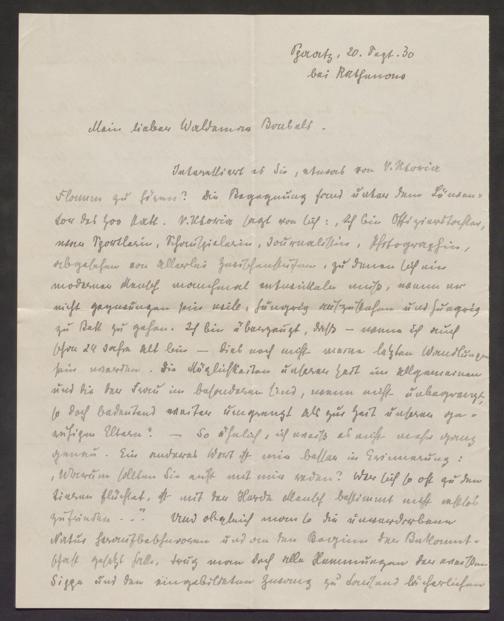 Graatz, 20. Sept. 30
bei Rathenow
Mein lieber Waldemar Bonsels.
Interessiert es Sie, etwas von Viktoria
Flamm zu hören? Die Begegnung fand unter dem
tor des Zoo statt. Viktoria sagt von sich: „Ich bin Offizierstochter,
war Sportlerin, Schauspielerin, Journalistin, Photographin,
abgesehen von allerlei Zwischenstufen, zu denen sich ein
moderner Mensch manchmal entwickeln muß, wenn er
nicht gezwungen sein will, hungrig aufzustehen und hungrig
zu Bett zu gehen. Ich bin überzeugt, daß – wenn ich auch
schon 24 Jahre alt bin – dies noch nicht meine letzten Wandlungen
sein werden. Die Möglichkeiten unserer Zeit im allgemeinen
und die der Frau im besonderen sind, wenn nicht unbegrenzt,
so doch bedeutend weiter umgrenzt als zur Zeit unserer
Eltern". – So ähnlich, ich weiß es nicht mehr ganz
genau. Ein anderes Wort ist mir besser in Erinnerung:
„Warum sollten Sie nicht mit mir reden? Wer sich so oft zu den
Tieren flüchtet, ist mit der Horde Mensch bestimmt nicht restlos
zufrieden . ." Und obgleich man so die unverdorbene
Natur heraufbeschworen und an den Beginn der Bekannt-
schaft gesetzt hatte, trug man doch alle Hemmungen der
Sippe und den eingebildeten Zwang zu tausend lächerlichen